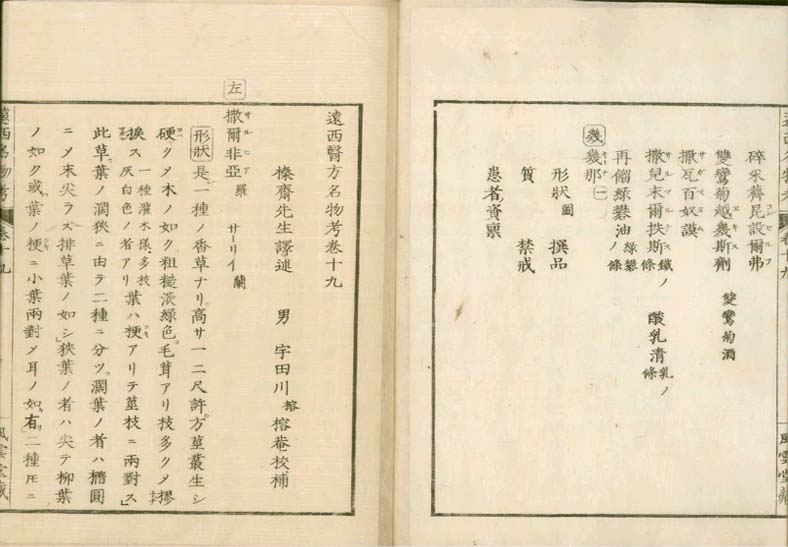 碎米薺昆設爾弗
コンセルフ
雙鸞菊越幾斯劑　雙鸞菊酒
エキス
撒瓦百奴謨
サガペニュム
撒兒末爾扶斯鐵ノ條　酸乳清乳ノ條
再餾綠礬油綠礬ノ條
幾
幾那一
形狀圖　撰品
質　禁戒
患者資稟
風雲堂藏
左
遠西醫方名物考卷十九
榛齋先生譯述　男　宇田川榕　榕菴校補
撒爾非亞羅　サーリイ蘭
サルヒア
形狀是一種ノ香草ナリ高サ一二尺許方莖叢生シ
硬クメ木ノ如ク粗糙淡綠色毛茸アリ枝多クメ摎
捩ス一種灌木樣多枝灰白色ノ者アリ葉ハ梗アリテ莖枝ニ兩對ス
此草葉ノ濶狹ニ由テ二種ニ分ツ濶葉ノ者ハ橢圓
ニメ末尖ラズ排草葉ノ如シ狹葉ノ者ハ尖テ柳葉
ノ如ク或葉ノ梗ニ小葉兩對メ耳ノ如キ有二種𪜈ニ
遠西名物考　卷十九
風雲堂藏